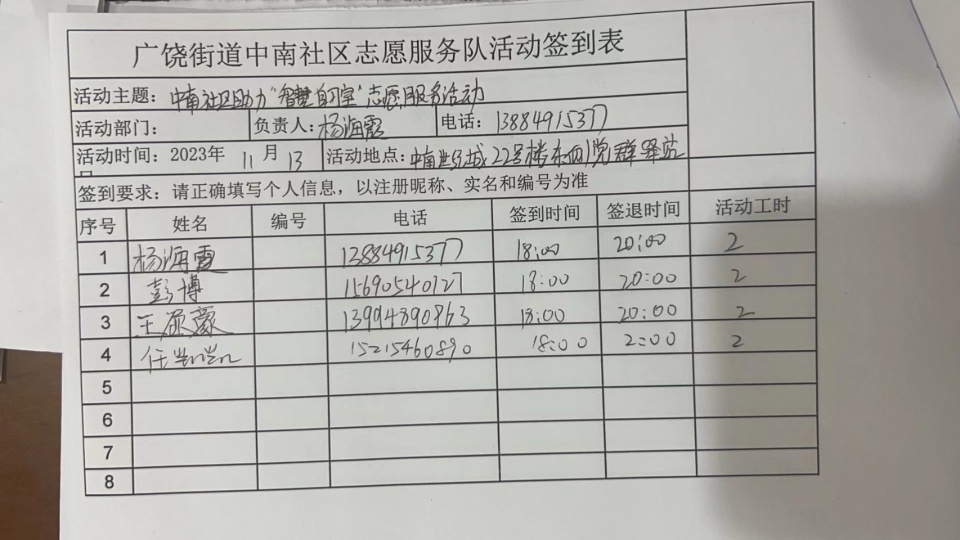 广饶街道中南社区志愿服务队活动签到表
活动主题：中南社区助力“智慧自习室”志愿服务活动
活动部门： 负责人：杨海霞 电话：13884915377
活动时间：2023年 11月 13 活动地点：中南世纪城22号楼东四党群驿站
签到要求：请正确填写个人信息，以注册昵称、实名和编号为准
序号 姓名 编号 电话 签到时间 签退时间 活动工时
1 杨海霞 13884915377 18:00 20:00 2
2 彭博 15690540127 18:00 20:00 2
3 王 13994890863 18:00 20:00 2
4 任 15215460890 18:00 2:00 2
5
6
7
8